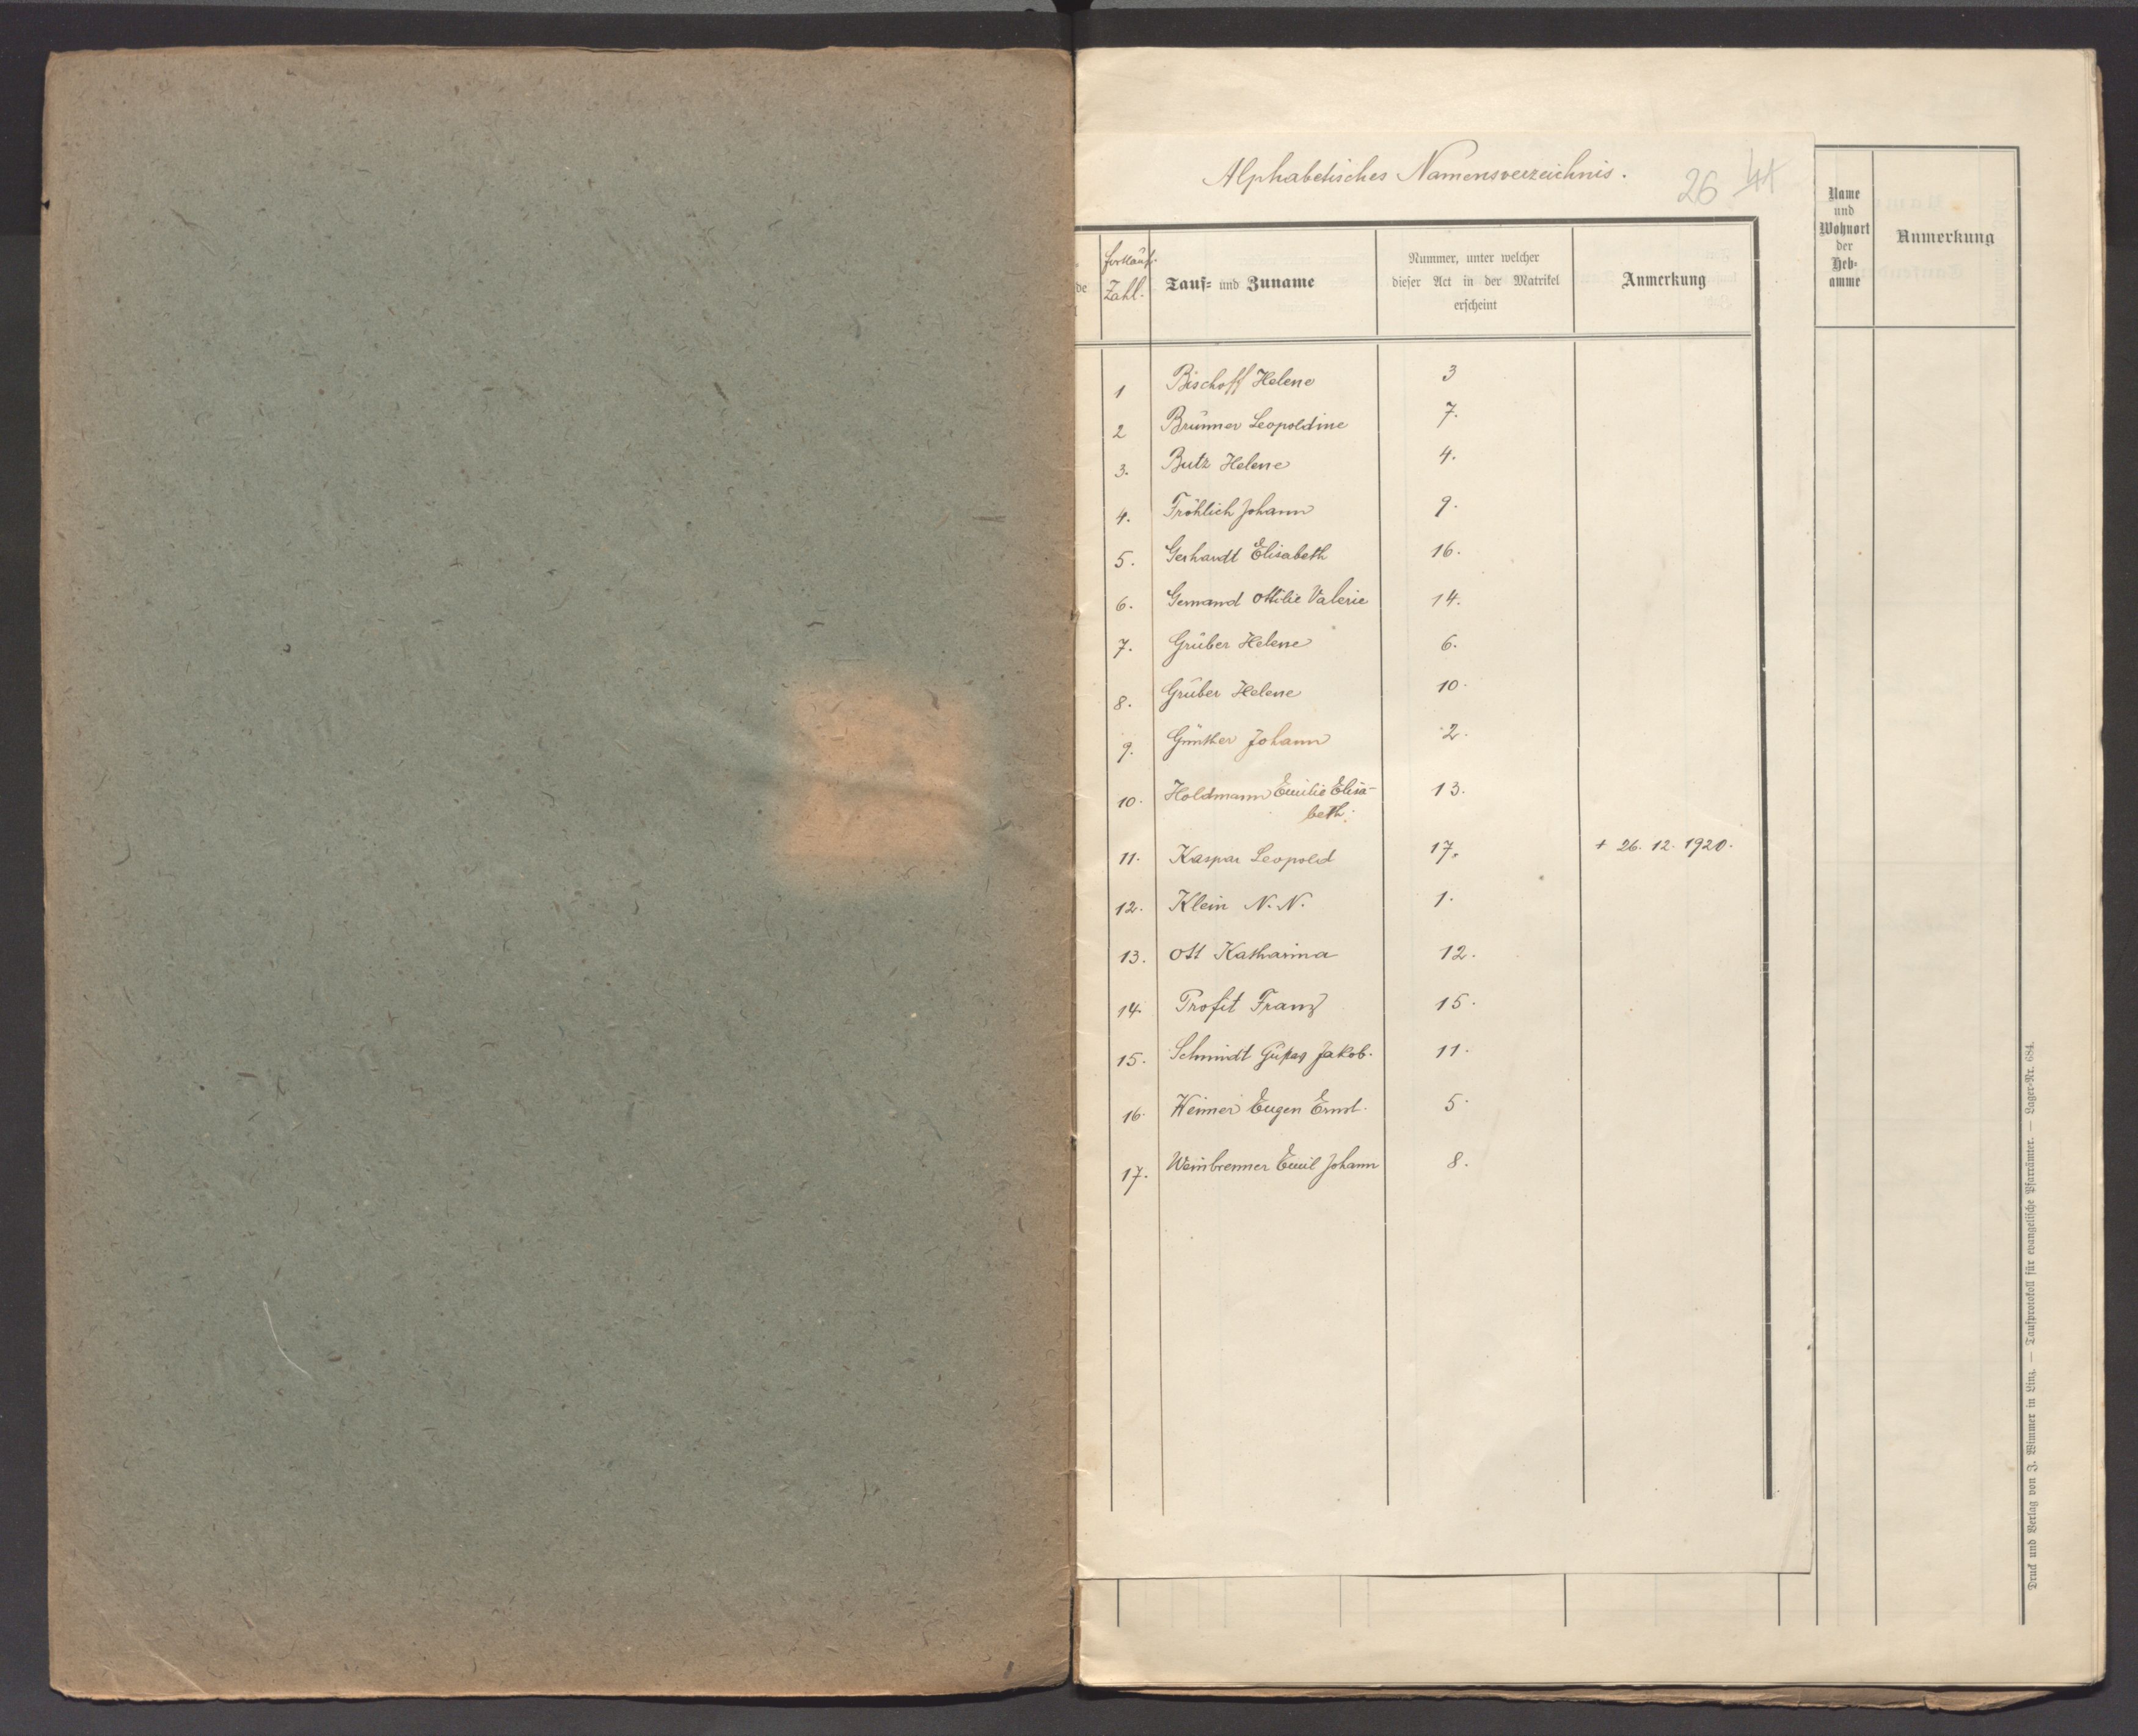 Alphabetisches Namensverzeichnis.
26
Fortlauf.
Zahl.
Tauf- und Zuname
Nummer, unter welcher
dieser Act in der Matrikel
erscheint
Anmerkung
1 Bischoff Helene 3
2 Brünner Leopoldine 7.
3. Butz Helene 4.
4. Fröhlich Johann 9.
5. Gerhardt Elisabeth 16.
6. Gemand Ottilie Valerie 14.
7. Grüber Helene 6.
8. Grüber Helene 10.
9. Günther Johann 2.
10. Holdmann Emilie Elisa-
beth. 13.
11. Kaspar Leopold 17. + 26. 12. 1920.
12. Klein N. N. 1.
13. Ott Katharina 12.
14. Profit Franz 15.
15. Schmidt Jakob. 11.
16. Weimer Eugen Ernst. 5.
17. Weinbrenner Emil Johann 8.
Name
und
Wohnort
der
Heb-
amme
Anmerkung
Druck und Verlag von J. Wimmer in Linz. — Taufprotokoll für evangelische Pfarrämter. — Lager-Nr. 684.